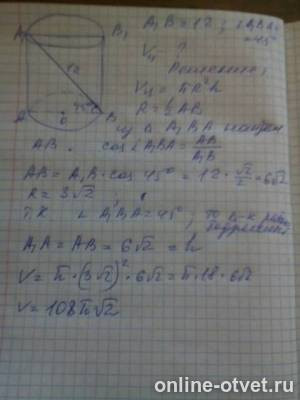 A₁ B₁ A₁B = 12; ∠A₁BA = 45°
Vц ?
12 Решение:
Vц = πR²h
45° R = ½ AB
A O B из △ A₁BA найдём
AB. cos∠A₁BA = AB/A₁B
AB = A₁B · cos 45° = 12 · √2/2 = 6√2
R = 3√2
т.к ∠A₁BA = 45°, то
A₁A = AB = 6√2 = h
V = π · (3√2)² · 6√2 = π · 18 · 6√2
V = 108π√2
online-otvet.ru